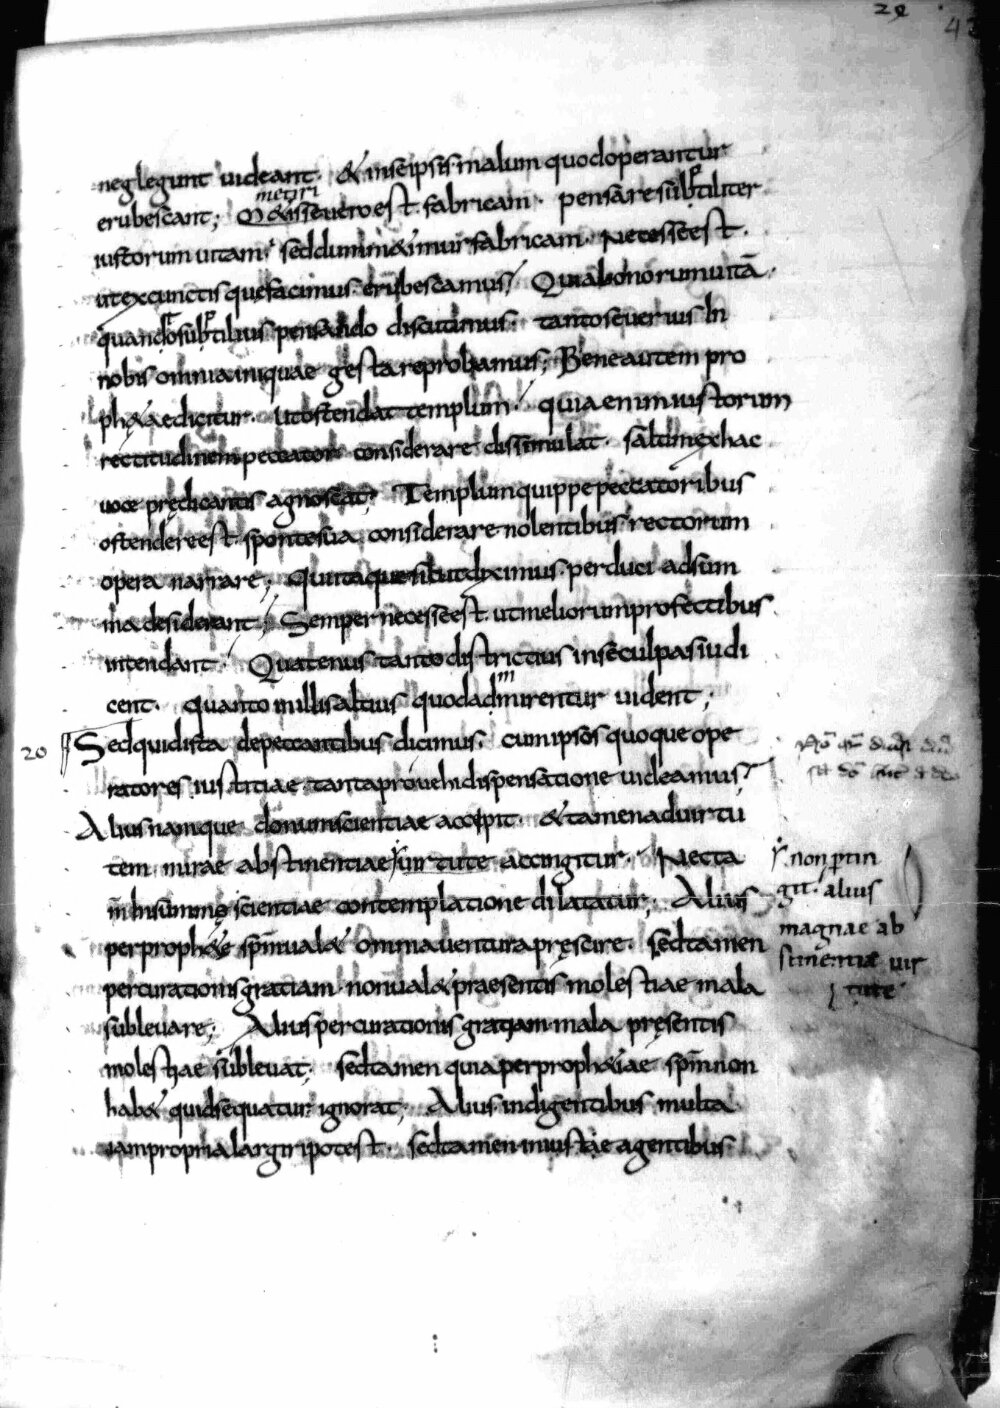 29
43
neglegunt uideant· & inseipsis malum quod operantur
metiri
erubescant; M&isse uero est fabricam· pensare subtiliter
iustorum uitam· sed dum m&imur fabricam· Necesse est·
ut ex cunctis que facimus erubescamus; Quia bonorum uitā·
quando subtilius pensando discutimus· tanto seuerius In
nobis omnia iniquae gesta reprobamus; Bene autem pro
ph&ae dicitur· ut ostendat templum· quia enim iustorum
rectitudinem peccator considerare dissimulat· saltim ex hac
uoce prędicantis agnoscat; Templum quippe peccatoribus
ostendere est· sponte sua considerare nolentibus rectorum
opera narrare; Qui itaque sicut diximus perduci ad sum
ma desiderant; Semper necesse est ut meliorum profectibus
intendant· Quatenus tanto districtius in se culpas iudi
cent· quanto in illis altius quod admirentur uident;
20 Sed qui dista de peccantibus dicimus· cum ipsos quoque ope
ratores iustitiae tanta prouehi dispensatione uideamus;
Alius namque donum scientiae accepit· & tamen ad uirtu
tem mirae abstinentiae uirtute accingitur· Nec ta
m In summe scientiae contemplatione dilatatur; Alius
per proph&ię sp̄m ual& omnia uentura pręscire· sed tamen
per curationis gratiam non ual& praesentis molestiae mala
subleuare; Alius per curationis gratiam mala pręsentis
molestiae subleuat· sed tamen quia per proph&iae sp̄m non
hab& quid sequatur ignorat; Alius indigentibus multa
iam propria largiri potest· sed tamen iniustae agentibus
non ptin
git· alius
magnae ab
stinentiae uir
tute